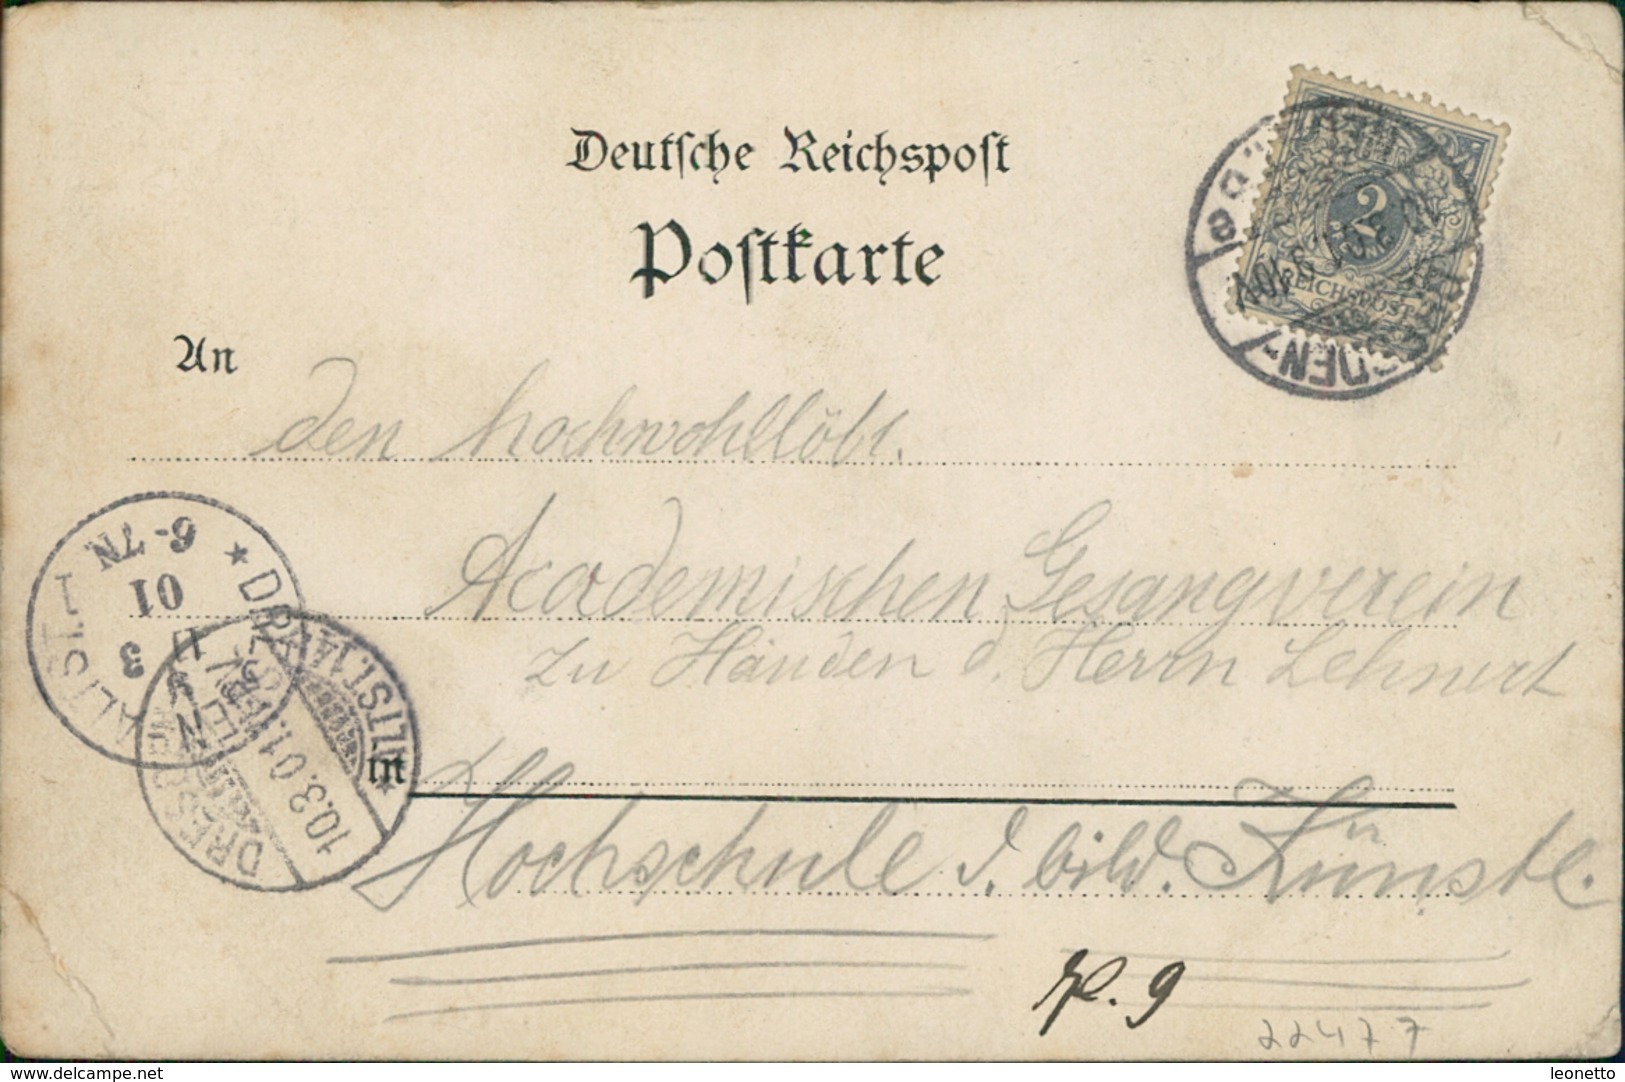 Deutsche Reichspost
Postkarte
2
REICHSPOST
DEN-
An
den hochwohllöbl.
Academischen Gesangverein
zu Händen d. Herrn Lehnert
in
Hochschule d. bild. Künste.
DRESDEN
ALTST.
11
3
01
6-7N
DRESDEN
ALTST. 14
10.3.01.
p. 9
22477
www.delcampe.net
leonetto